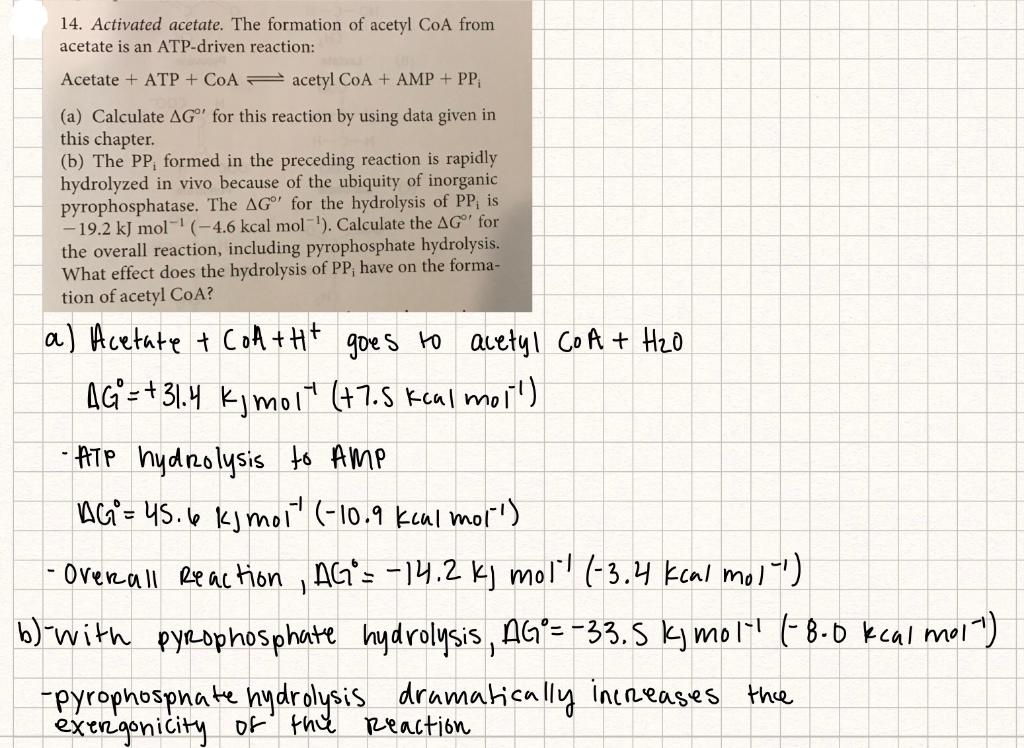 14. Activated acetate. The formation of acetyl CoA from
acetate is an ATP-driven reaction:
Acetate + ATP + CoA ⇌ acetyl CoA + AMP + PPᵢ
(a) Calculate ΔG°′ for this reaction by using data given in
this chapter.
(b) The PPᵢ formed in the preceding reaction is rapidly
hydrolyzed in vivo because of the ubiquity of inorganic
pyrophosphatase. The ΔG°′ for the hydrolysis of PPᵢ is
−19.2 kJ mol⁻¹ (−4.6 kcal mol⁻¹). Calculate the ΔG°′ for
the overall reaction, including pyrophosphate hydrolysis.
What effect does the hydrolysis of PPᵢ have on the forma-
tion of acetyl CoA?
a) Acetate + CoA + H⁺ goes to acetyl CoA + H₂O
ΔG° = +31.4 kJ mol⁻¹ (+7.5 kcal mol⁻¹)
- ATP hydrolysis to AMP
ΔG° = 45.6 kJ mol⁻¹ (-10.9 kcal mol⁻¹)
- Overall Reaction, ΔG° = -14.2 kJ mol⁻¹ (-3.4 kcal mol⁻¹)
b) -with pyrophosphate hydrolysis, ΔG° = -33.5 kJ mol⁻¹ (-8.0 kcal mol⁻¹)
-pyrophospnate hydrolysis dramatically increases the
exergonicity of the Reaction